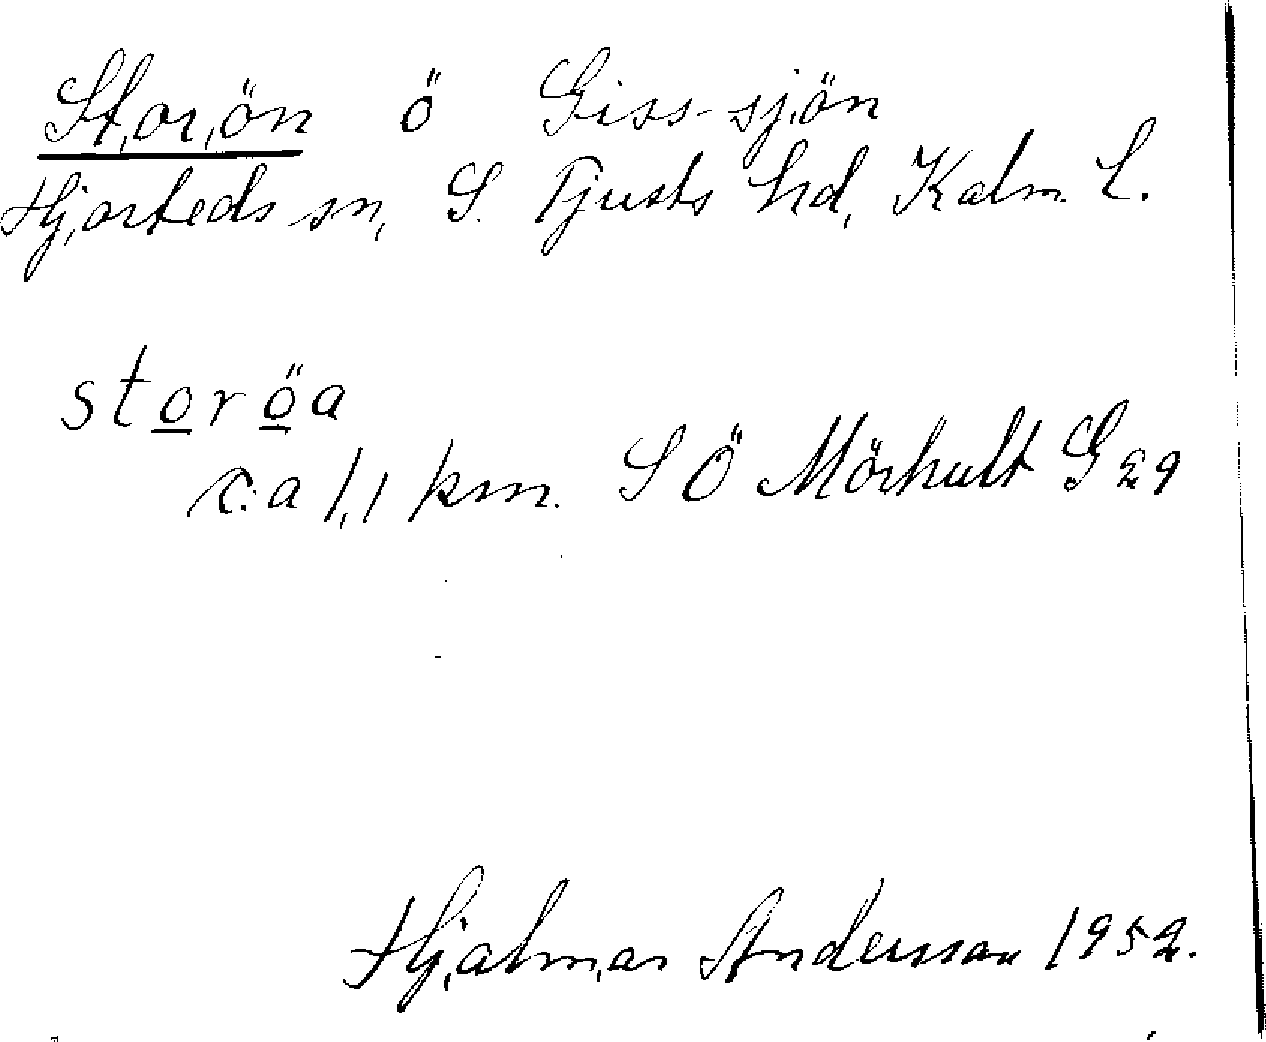 Storön ö Giss-sjön
Hjorteds sn, S. Tjusts hd, Kalm. L.
storöa
c:a 1,1 km. SÖ Mörhult G29
Hjalmar Andersson 1952.